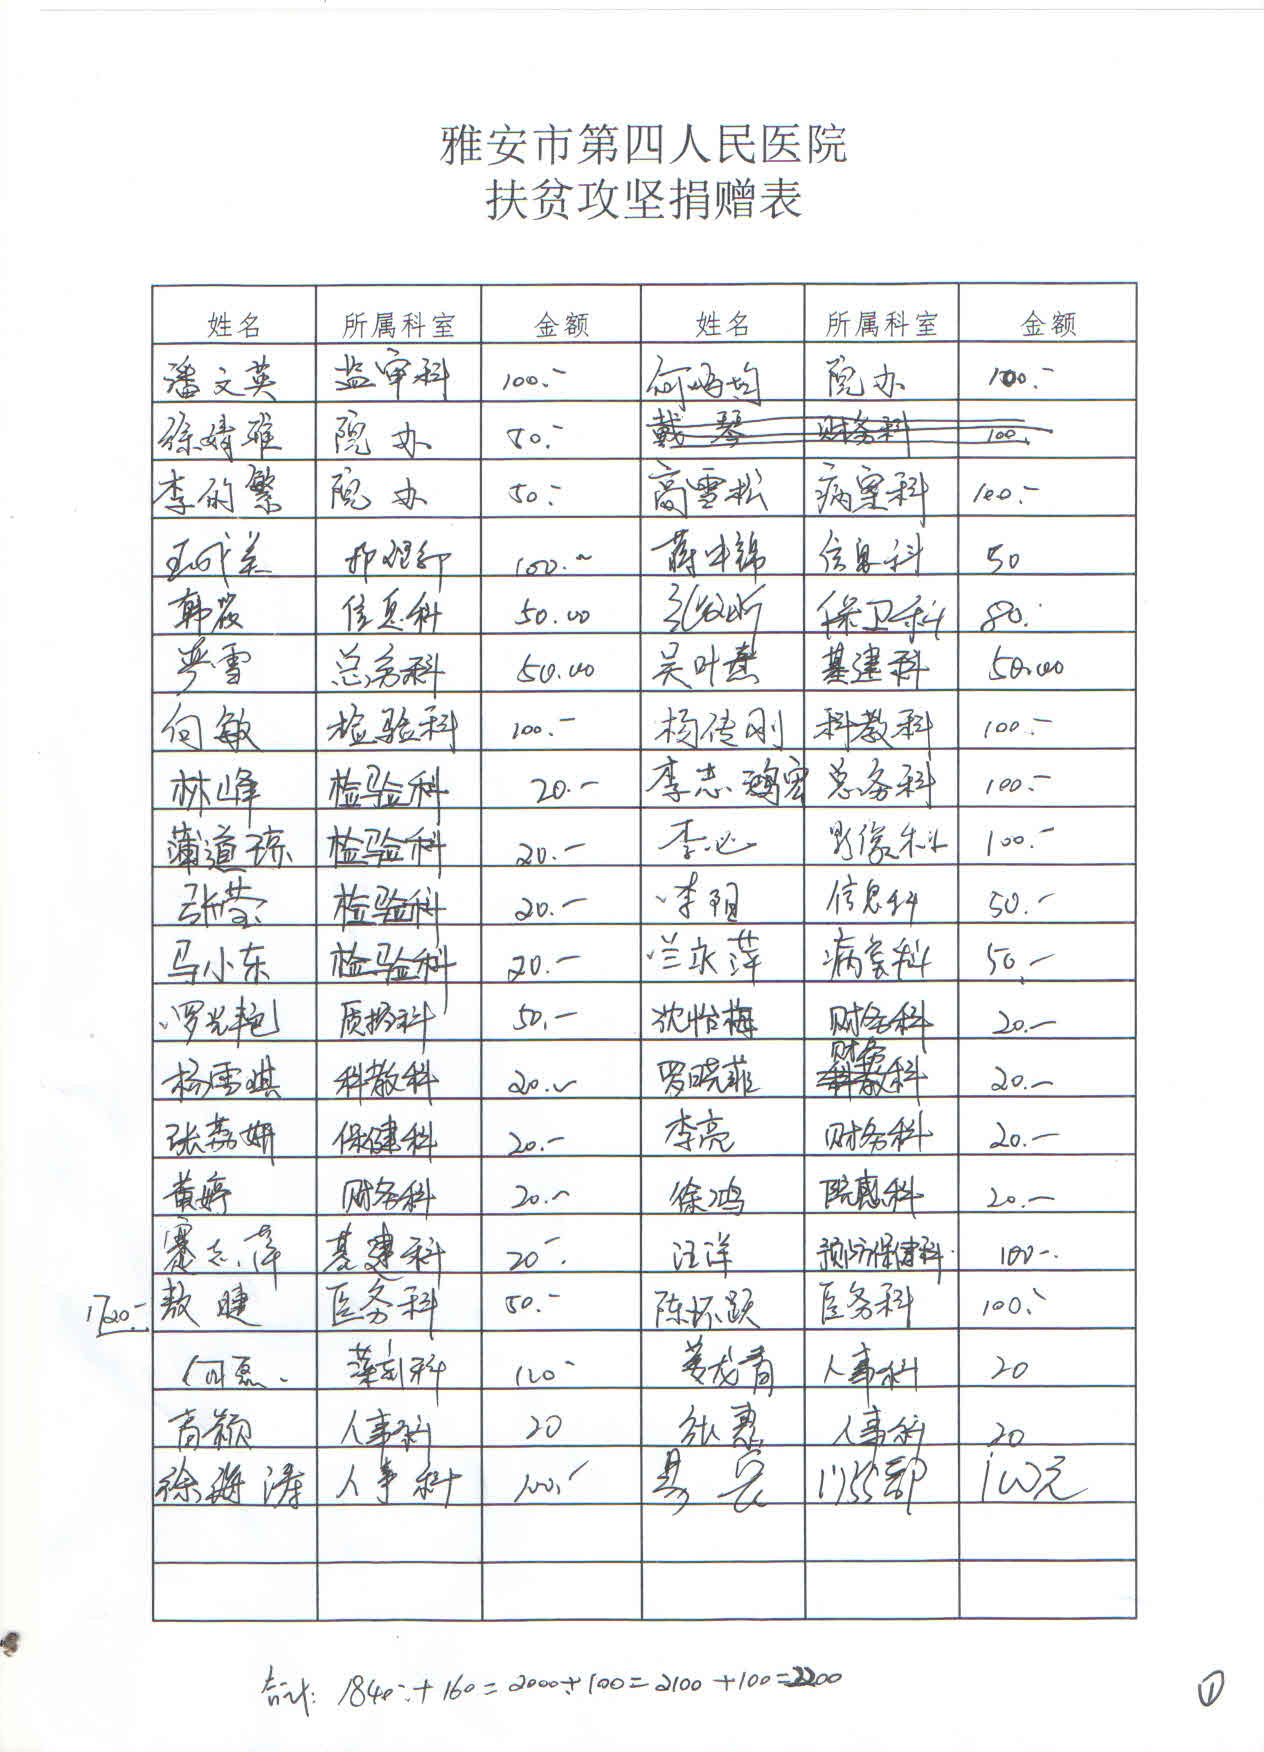 雅安市第四人民医院
扶贫攻坚捐赠表
姓名 所属科室 金额 姓名 所属科室 金额
潘文英 监审科 100.- 何 均 院办 100.-
徐婧雅 院办 50.- 戴琴 财务科 100.
李的繁 院办 50.- 高雪松 病案科 100.-
王成美 100.- 蒋中锦 信息科 50
韩筱 信息科 50.00 保卫科 80.
岑雪 总务科 50.00 吴叶熹 基建科 50.00
何敏 检验科 100.- 杨传刚 科教科 100.-
林峰 检验科 20.- 李志 宏 总务科 100.-
蒲道琼 检验科 20.- 李必 影像科 100.-
张莹 检验科 20.- 李阳 信息科 50.-
马小东 检验科 20.- 兰永萍 病案科 50.-
罗光艳 质控科 50.- 沈怡梅 财务科 20.-
财务
杨雪琪 科教科 20.- 罗晓菲 科教科 20.-
张荔妍 保健科 20.- 李亮 财务科 20.-
黄婷 财务科 20.- 徐鸿 院感科 20.-
蹇志萍 基建科 20.- 汪洋 预防保健科 100-.
1720.- 敖睫 医务科 50.- 陈怀跃 医务科 100.-
何磊 药剂科 100- 姜龙青 人事科 20
高颖 人事科 20 张惠 人事科 20
徐海涛 人事科 100.- 易宏 门诊部 100元
合计: 1840.-+160=2000+100=2100+100=2200
①